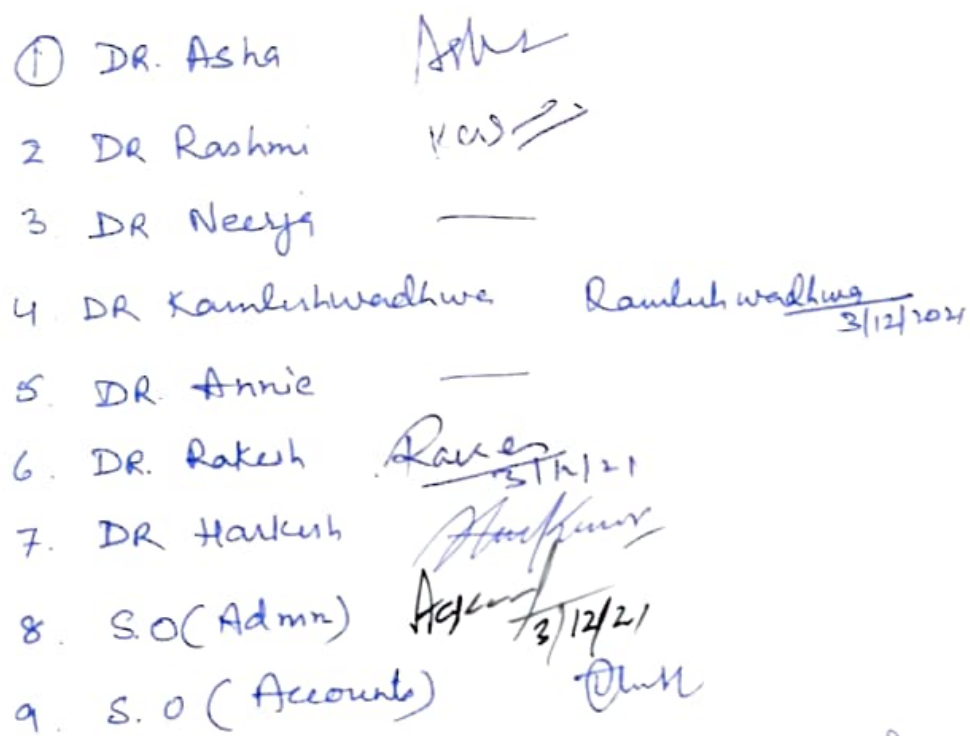 ① DR. Asha Asha
2 DR Rashmi
3 DR Neerja —
4 DR Kamleshwadhwa Kamlesh wadhwa 3/12/2021
5. DR. Annie —
6. DR. Rakesh 3/12/21
7. DR Harkesh
8. S.O (Admn) 3/12/21
9. S.O (Accounts)